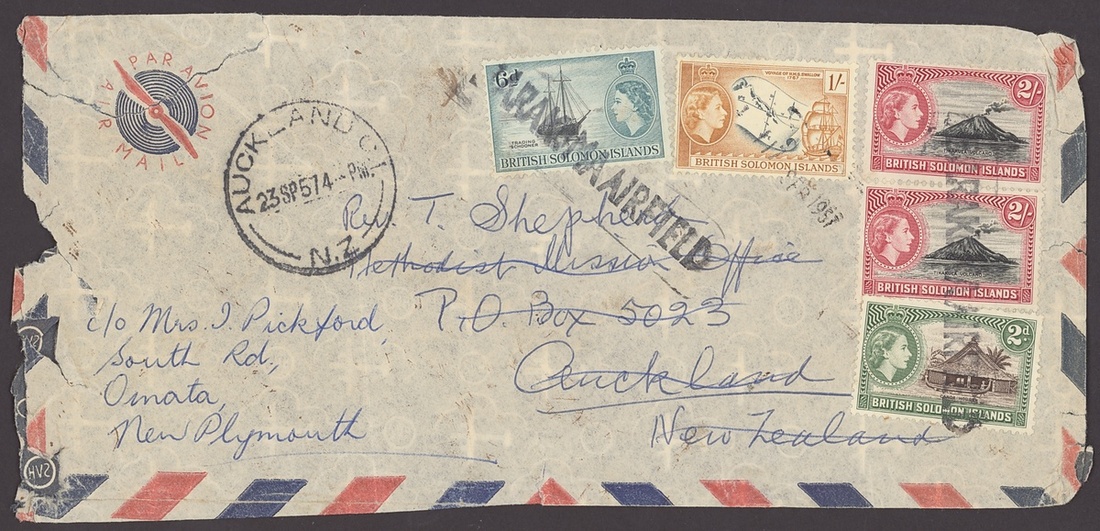 PAR AVION
AIR MAIL
AUCKLAND C.1
23 SP 57 4 - PM.
N.Z
6d
TRADING SCHOONER
BRITISH SOLOMON ISLANDS
VOYAGE OF H.M.S. SWALLOW
1767
1/-
BRITISH SOLOMON ISLANDS
2/-
TINAKULA VOLCANO
BRITISH SOLOMON ISLANDS
2/-
TINAKULA VOLCANO
BRITISH SOLOMON ISLANDS
2d.
BRITISH SOLOMON ISLANDS
AIRFIELD
1957
Rev. T. Shepherd
Methodist Mission Office
P.O. Box 5023
Auckland
New Zealand
c/o Mrs. I. Pickford,
South Rd.,
Omata,
New Plymouth